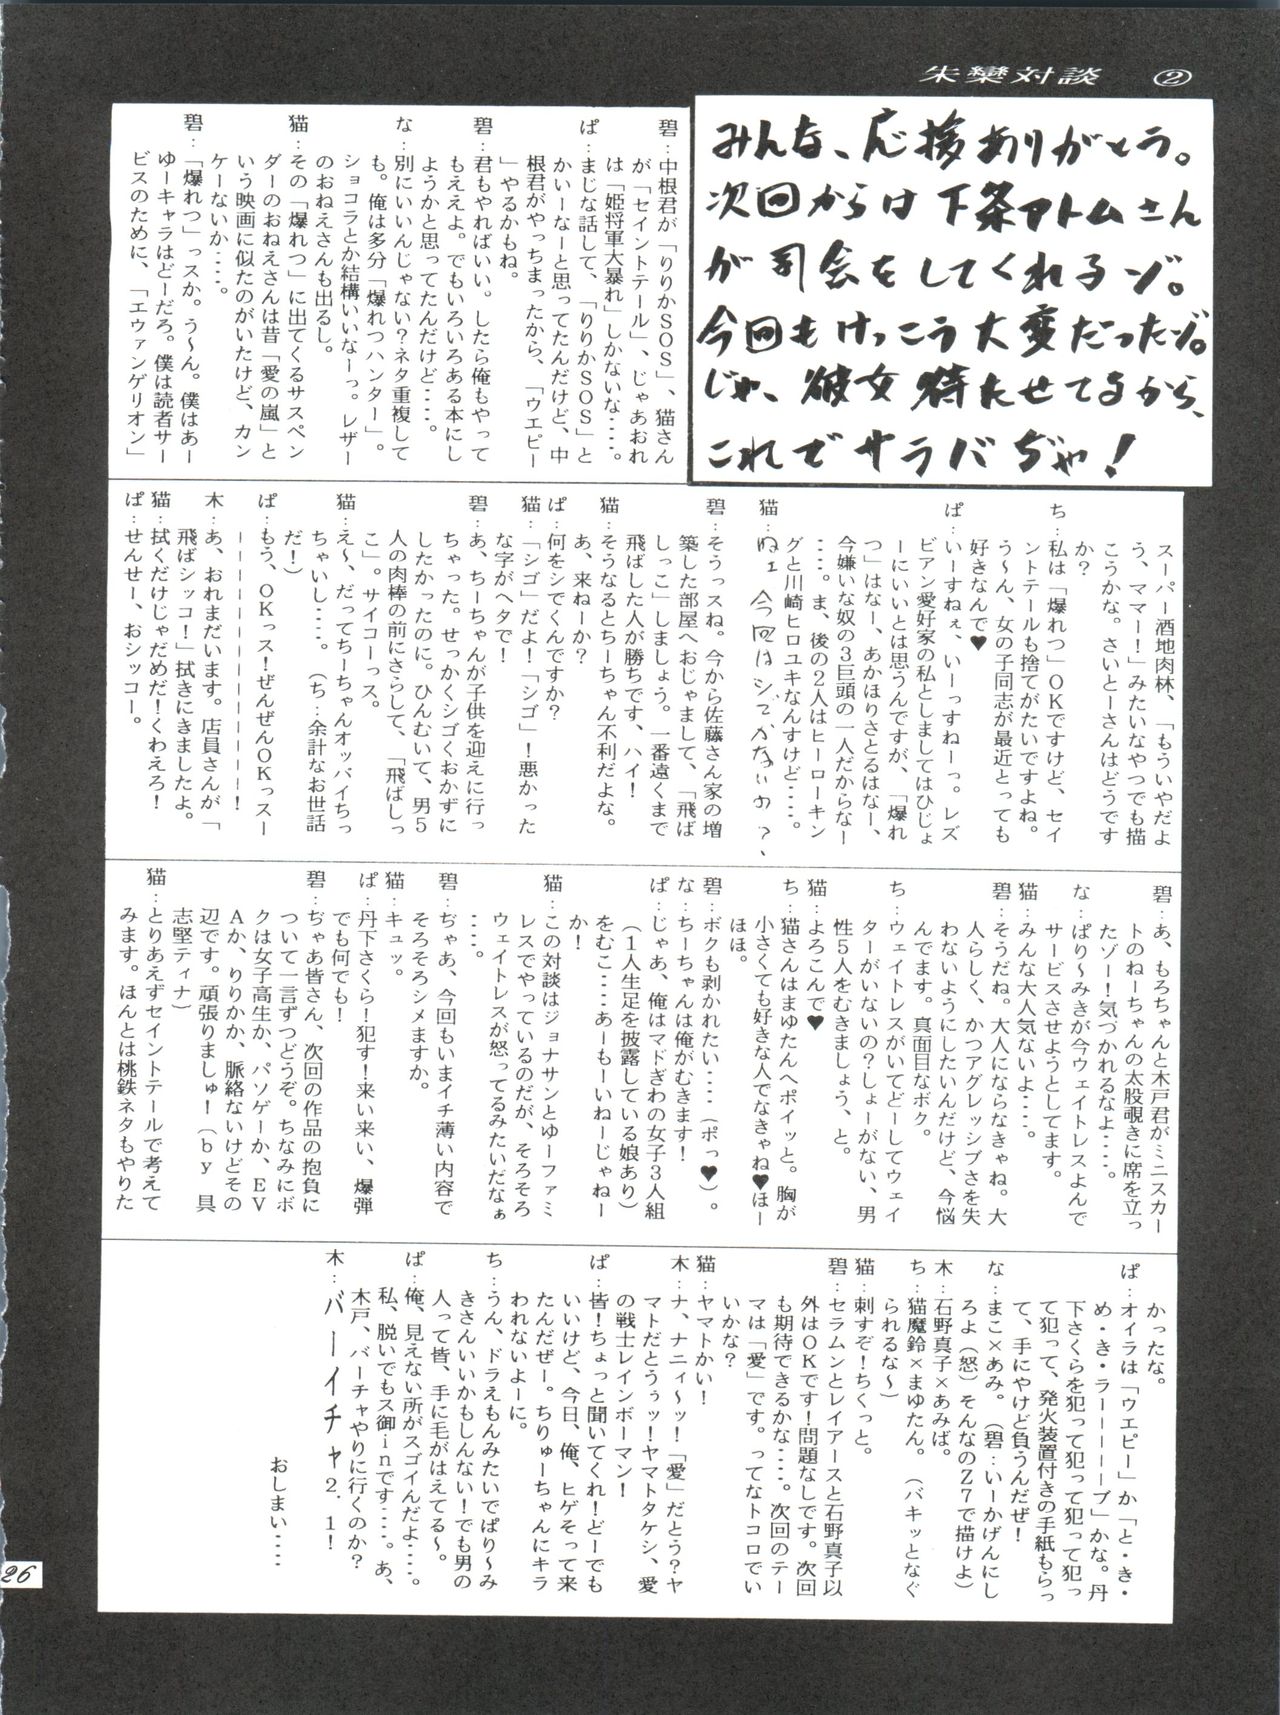 朱欒対談 ②
みんな、応援ありがとう。
次回からは下条アトムさん
が司会をしてくれるゾ。
今回もけっこう大変だったゾ。
じゃ、彼女待たせてるから、
これでサラバぢゃ！
碧：中根君が「りりかSOS」、猫さん
が「セイントテール」、じゃあおれ
は「姫将軍大暴れ」しかないな‥‥。
ぱ：まじな話して、「りりかSOS」と
かいーなーと思ってたんだけど、中
根君がやっちまったから、「ウエピー
」やるかもね。
碧：君もやればいい。したら俺もやって
もええよ。でもいろいろある本にし
ようかと思ってたんだけど‥‥。
な：別にいいんじゃない？ネタ重複して
も。俺は多分「爆れつハンター」。
ショコラとか結構いいなーっ。レザー
のおねえさんも出るし。
猫：その「爆れつ」に出てくるサスペン
ダーのおねえさんは昔「愛の嵐」と
いう映画に似たのがいたけど、カン
ケーないか‥‥。
碧：「爆れつ」っスか。う～ん。僕はあー
ゆーキャラはどーだろ。僕は読者サー
ビスのために、「エウァンゲリオン」
スーパー酒地肉林、「もういやだよ
う、ママー！」みたいなやつでも描
こうかな。さいとーさんはどうです
か？
ち：私は「爆れつ」OKですけど、セイ
ントテールも捨てがたいですよね。
う～ん、女の子同志が最近とっても
好きなんで♥
ぱ：いーすねぇ、いーっすねーっ。レズ
ビアン愛好家の私としましてはひじょ
ーにいいとは思うんですが、「爆れ
つ」はなー、あかほりさとるはなー、
今嫌いな奴の3巨頭の一人だからなー
‥‥。ま、後の2人はヒーローキン
グと川崎ヒロユキなんすけど‥‥。
猫：ねェ今回はシゴかないの？、
碧：そうっスね。今から佐藤さん家の増
築した部屋へおじゃまして、「飛ば
しっこ」しましょう。一番遠くまで
飛ばした人が勝ちです、ハイ！
猫：そうなるとちーちゃん不利だよな。
あ、来ねーか？
ぱ：何をシでくんですか？
猫：「シゴ」だよ！「シゴ」！悪かった
な字がヘタで！
碧：あ、ちーちゃんが子供を迎えに行っ
ちゃった。せっかくシゴくおかずに
したかったのに。ひんむいて、男5
人の肉棒の前にさらして、「飛ばしっ
こ」。サイコーっス。
猫：え～、だってちーちゃんオッパイちっ
ちゃいし‥‥。（ち：余計なお世話
だ！）
ぱ：もう、OKっス！ぜんぜんOKっスー
ーーーーーーーーーーーー！
木：あ、おれまだいます。店員さんが「
飛ばシッコ！」拭きにきましたよ。
猫：拭くだけじゃだめだ！くわえろ！
ぱ：せんせー、おシッコー。
碧：あ、もろちゃんと木戸君がミニスカー
トのねーちゃんの太股覗きに席を立っ
たゾー！気づかれるなよ‥‥。
な：ぱり～みきが今ウェイトレスよんで
サービスさせようとしてます。
猫：みんな大人気ないよ‥‥。
碧：そうだね。大人にならなきゃね。大
人らしく、かつアグレッシブさを失
わないようにしたいんだけど、今悩
んでます。真面目なボク。
ち：ウェイトレスがいてどーしてウェイ
ターがいないの？しょーがない、男
性5人をむきましょう、と。
猫：よろこんで♥
ち：猫さんはまゆたんへポイッと。胸が
小さくても好きな人でなきゃね♥ほー
ほほ。
碧：ボクも剥かれたい‥‥（ポっ♥）。
な：ちーちゃんは俺がむきます！
ぱ：じゃあ、俺はマドぎわの女子3人組
（1人生足を披露している娘あり）
をむこ‥‥あーもーいねーじゃねー
か！
猫：この対談はジョナサンとゆーファミ
レスでやっているのだが、そろそろ
ウェイトレスが怒ってるみたいだなぁ
‥‥。
碧：ぢゃあ、今回もいまイチ薄い内容で
そろそろシメますか。
猫：キュッ。
ぱ：丹下さくら！犯す！来い来い、爆弾
でも何でも！
碧：ぢゃあ皆さん、次回の作品の抱負に
ついて一言ずつどうぞ。ちなみにボ
クは女子高生か、パソゲーか、EV
Aか、りりかか、脈絡ないけどその
辺です。頑張りましゅ！（by 具
志堅ティナ）
猫：とりあえずセイントテールで考えて
みます。ほんとは桃鉄ネタもやりた
かったな。
ぱ：オイラは「ウエピー」か「と・き・
め・き・ラーーーーブ」かな。丹
下さくらを犯って犯って犯って犯っ
て犯って、発火装置付きの手紙もらっ
て、手にやけど負うんだぜ！
な：まこ×あみ。（碧：いーかげんにし
ろよ（怒）そんなのZ7で描けよ）
木：石野真子×あみば。
ち：猫魔鈴×まゆたん。（バキッとなぐ
られるな～）
猫：刺すぞ！ちくっと。
碧：セラムンとレイアースと石野真子以
外はOKです！問題なしです。次回
も期待できるかな‥‥。次回のテー
マは「愛」です。ってなトコロでい
いかな？
猫：ヤマトかい！
木：ナ、ナニィ～ッ！「愛」だとう？ヤ
マトだとうぅッ！ヤマトタケシ、愛
の戦士レインボーマン！
ぱ：皆！ちょっと聞いてくれ！どーでも
いいけど、今日、俺、ヒゲそって来
たんだぜー。ちりゅーちゃんにキラ
われないよーに。
ち：うん、ドラえもんみたいでぱり～み
きさんいいかもしんない！でも男の
人って皆、手に毛がはえてる～。
ぱ：俺、見えない所がスゴイんだよ‥‥。
私、脱いでもス御inです‥‥。あ、
木戸、バーチャやりに行くのか？
木：バーイチャ2．1！
おしまい‥‥
26